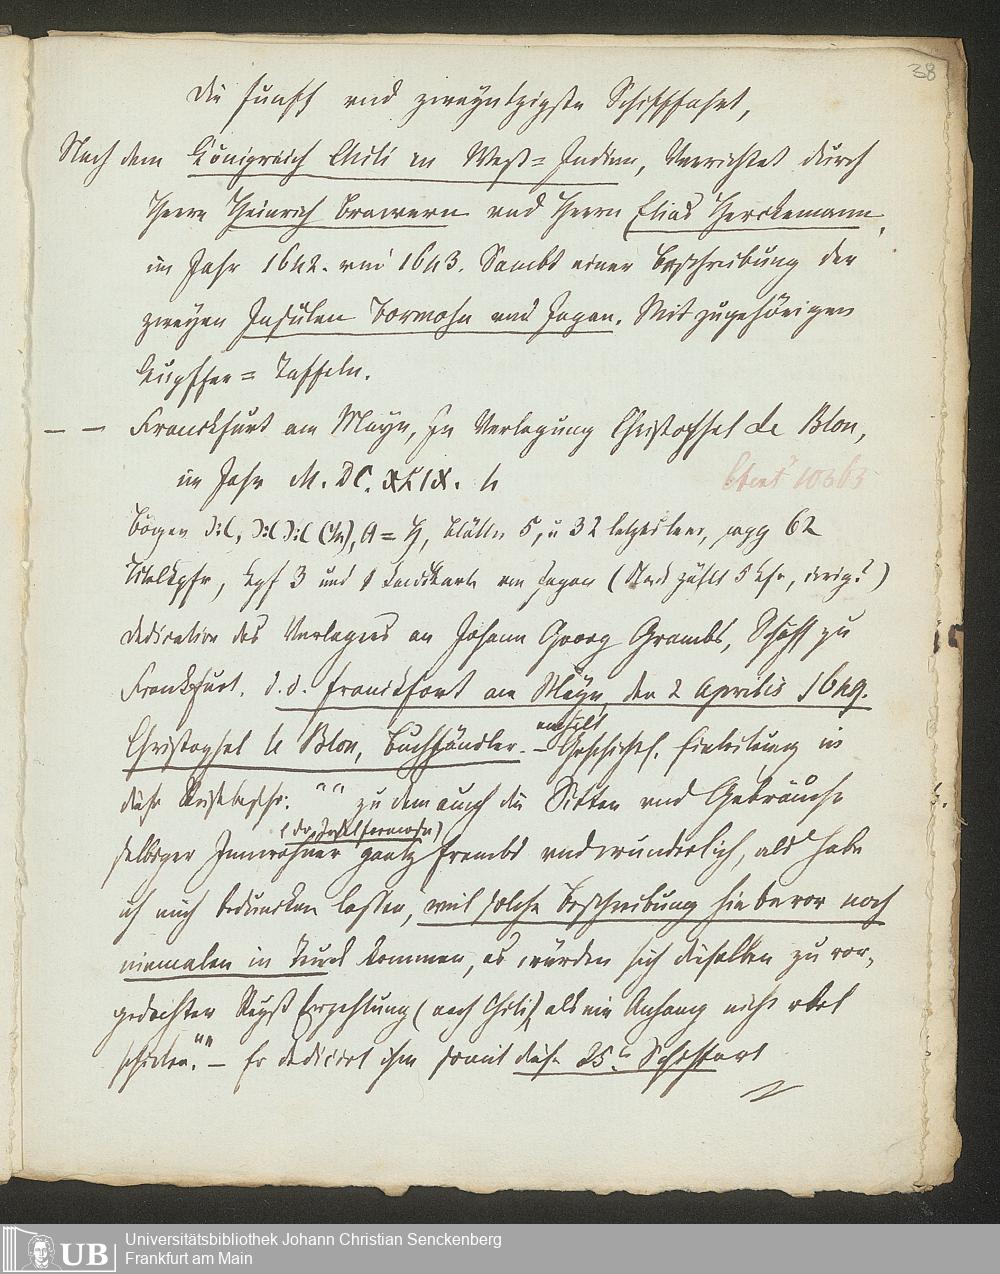 38
Die funfft und zweyntzigste Schifffahrt,
Nach dem Königreich Chili in West=Indien, Verrichtet durch
Herrn Heinrich Brawern und Herrn Elias Herckemann,
im Jahr 1642. und 1643. Sambt einer Beschreibung der
zweyen Insulen Formosa und Japan. Mit zugehörigen
Kupffer=Taffeln.
— — Franckfurt am Mayn, In Verlegung Christoffel Le Blon,
im Jahr M. DC. XLIX. 4
10363
Bogen ):(, ):( ):( A=H, Blätter 5, u 32 letztes leer, pagg 62
Titelkpfr, Kpf 3 und 1 Landkarte von Japan ( zählt 5 Kfr, )
Dedication des Verlegers an Johann Georg Grambs, Schöff zu
Frankfurt. d. d. Franckfort am Mayn, den 2 Aprilis 1649.
Christophel le Blon, Buchhändler. — enthält Geschichtl. Einleitung in
diese Reisebeschr. "" zu dem auch die Sitten und Gebräuche
selbiger Innwohner (der Insel Formosa) gantz frembd und wunderlich, als habe
ich mich beduncken lassen, weil solche Beschreibung hie bevor noch
niemalen in Truck kommen, es würden sich dieselben zu vor-
gedachter Reyß Erzehlung (nach Chili) als ein Anhang nicht übel
schicken."" — Er dedicirt ihm somit diese 25te Schiffart